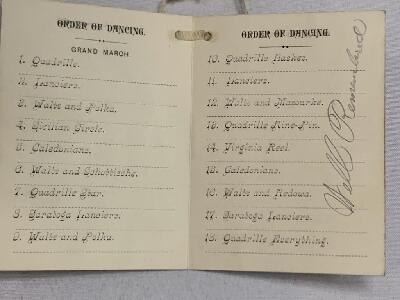 ORDER OF DANCING.
GRAND MARCH
1. Quadrille.
2. Lanciers.
3. Waltz and Polka.
4. Sicilian Circle.
5. Caledonians.
6. Waltz and Schottische.
7. Quadrille Star.
8. Saratoga Lanciers.
9. Waltz and Polka.
ORDER OF DANCING.
10. Quadrille Basket.
11. Lanciers.
12. Waltz and Mazourka.
13. Quadrille Nine-Pin.
14. Virginia Reel.
15. Caledonians.
16. Waltz and Redowa.
17. Saratoga Lanciers.
18. Quadrille Everything.
Well Remembered